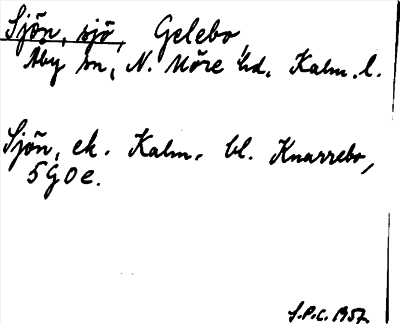 Sjön, sjö, Gelebo,
Åby sn, N. Möre hd, Kalm. l.
Sjön, ek. Kalm. bl. Knarrebo,
5 G 0 e.
S.P.C. 1957.